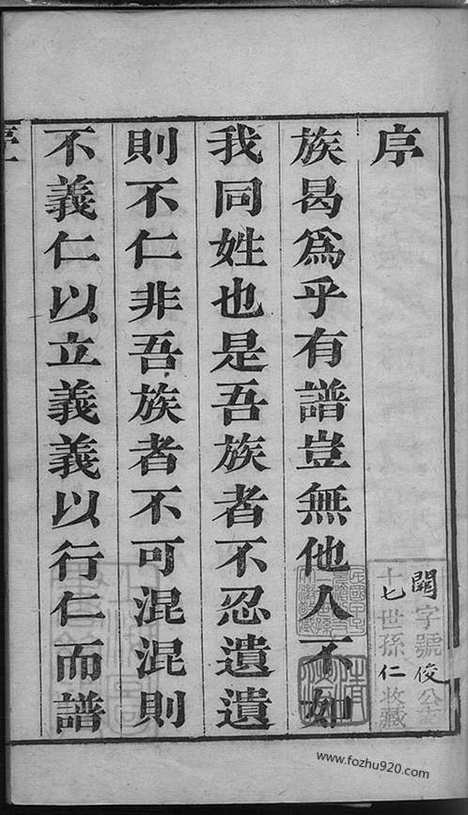 序
族曷爲乎有譜豈無他人不如
我同姓也是吾族者不忍遺遺
則不仁非吾族者不可混混則
不義仁以立義義以行仁而譜
關字號俊公
十七世孫仁收藏
www.fozhu920.com